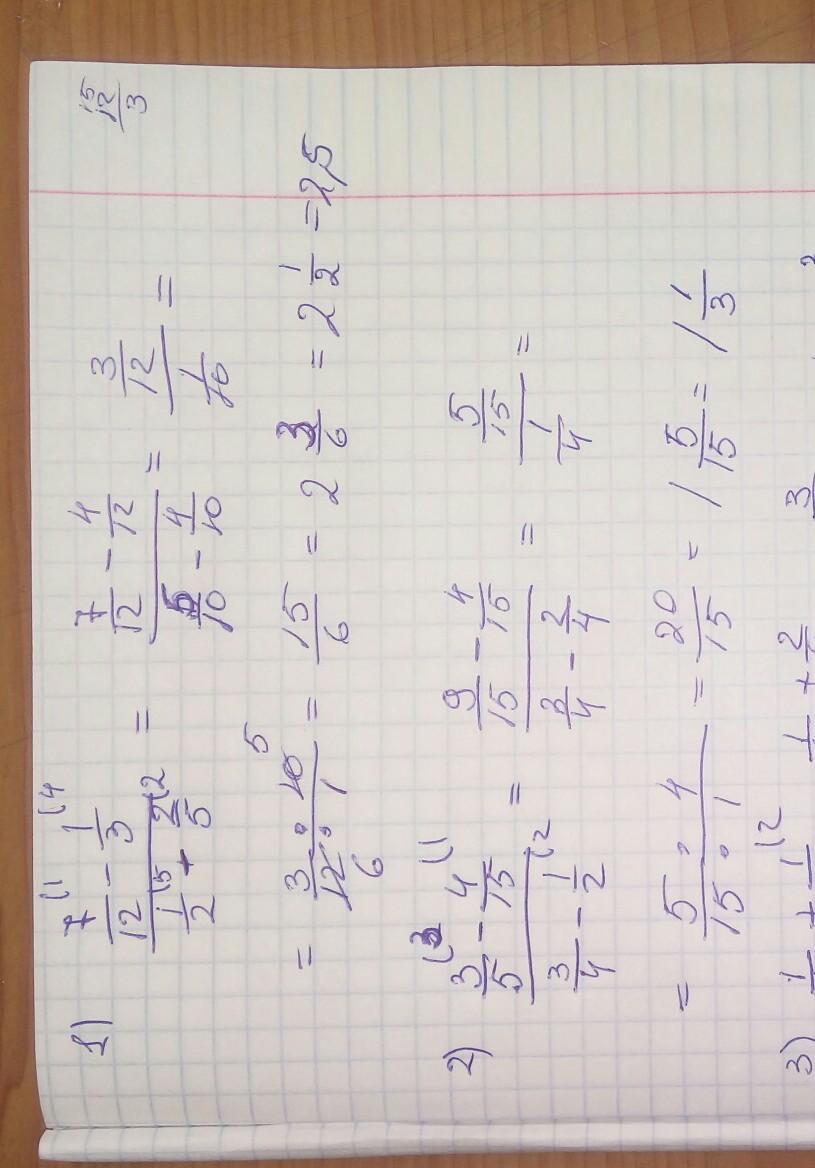 1) (7/12 (1 - 1/3 (4) / (1/2 (5 + 2/5 (2) = (7/12 - 4/12) / (5/10 - 4/10) = (3/12) / (1/10) =
= (3 · 10 5) / (12 6 · 1) = 15/6 = 2 3/6 = 2 1/2 = 2,5
2) (3/5 (3 - 4/15 (1) / (3/4 - 1/2 (2) = (9/15 - 4/15) / (3/4 - 2/4) = (5/15) / (1/4) =
= (5 · 4) / (15 · 1) = 20/15 = 1 5/15 = 1 1/3
3) 1 + 1 (2 1 + 2 3 2